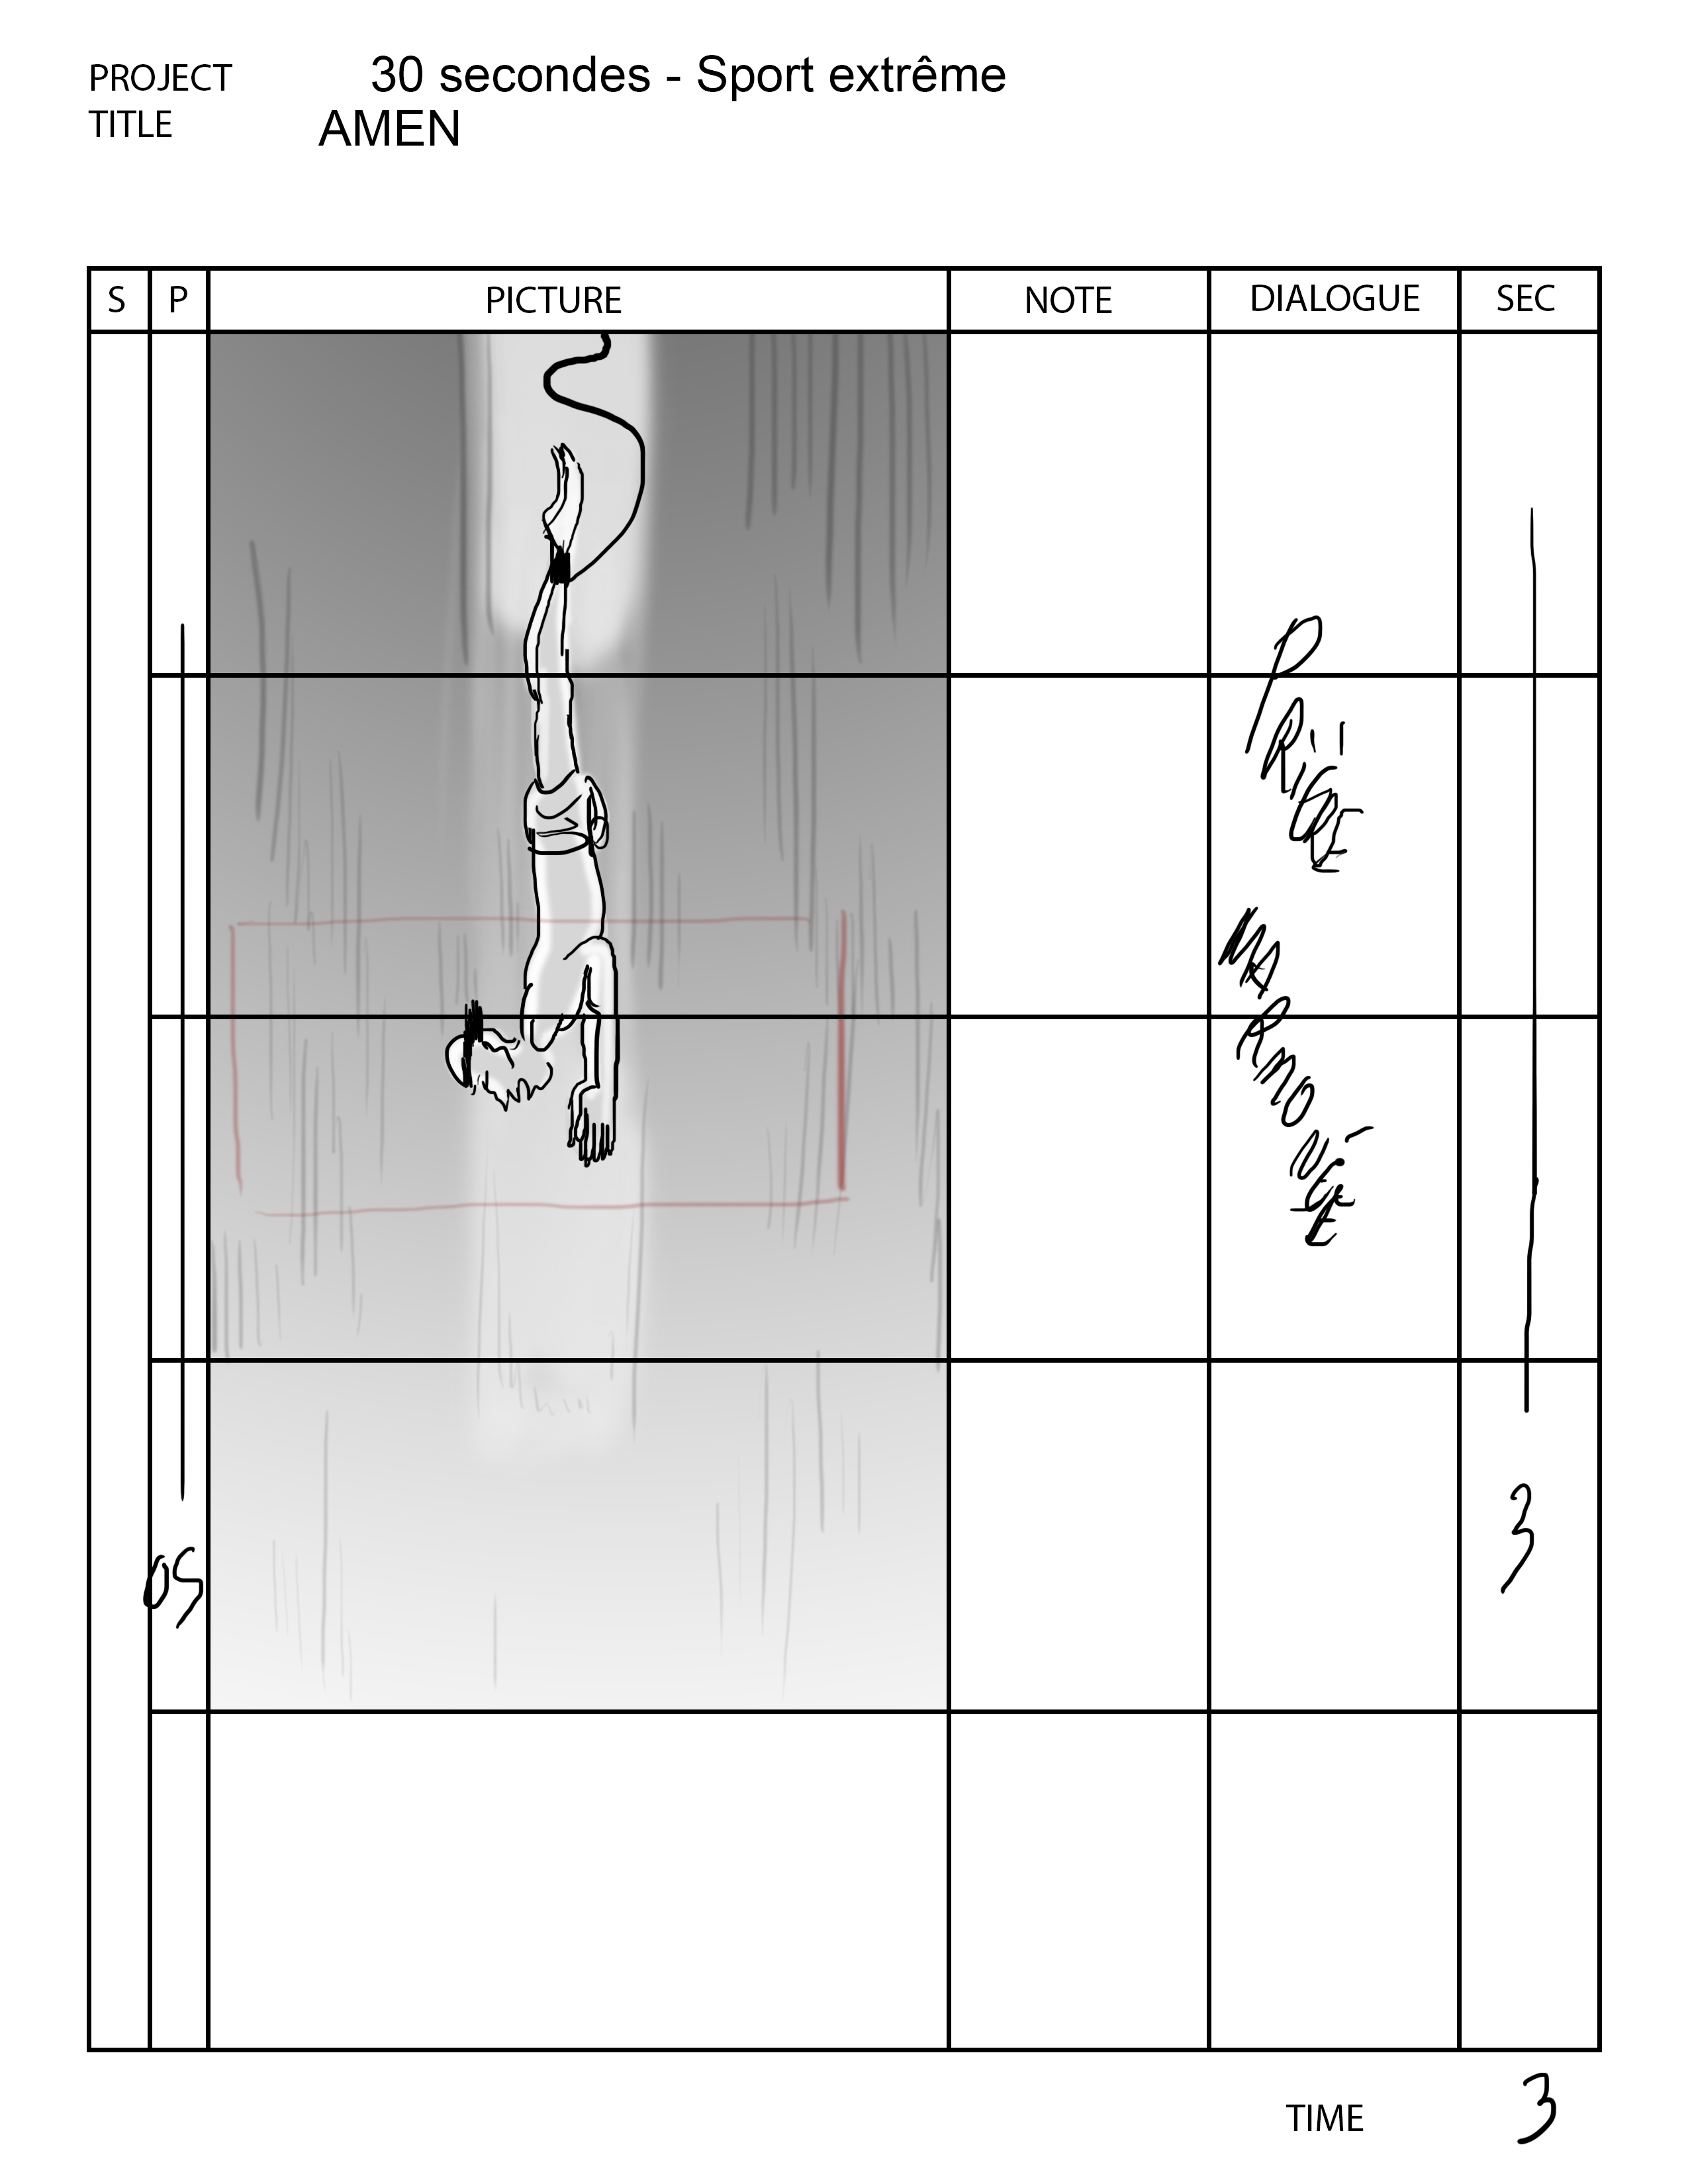 PROJECT 30 secondes - Sport extrême
TITLE AMEN
S P PICTURE NOTE DIALOGUE SEC
PRIÈRE
MARMONÉE
05
3
TIME 3